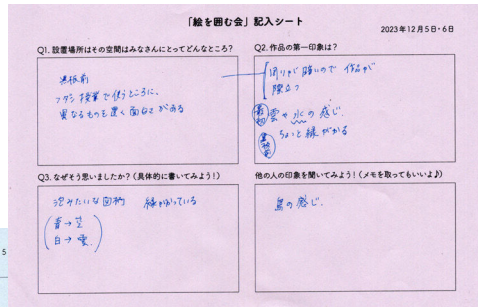 「絵を囲む会」記入シート
2023年12月5日・6日
Q1. 設置場所はその空間はみなさんにとってどんなところ?
黒板前
フダン授業で使うところに、
異なるものを置く面白さがある
Q2. 作品の第一印象は?
周りが暗いので 作品が
際立つ
最初 雲や氷の感じ。
ちょっと緑がかる
Q3. なぜそう思いましたか?(具体的に書いてみよう!)
泡みたいな図柄 緑がかっている
青→空
白→雲
他の人の印象を聞いてみよう!(メモを取ってもいいよ♪)
の感じ。
5